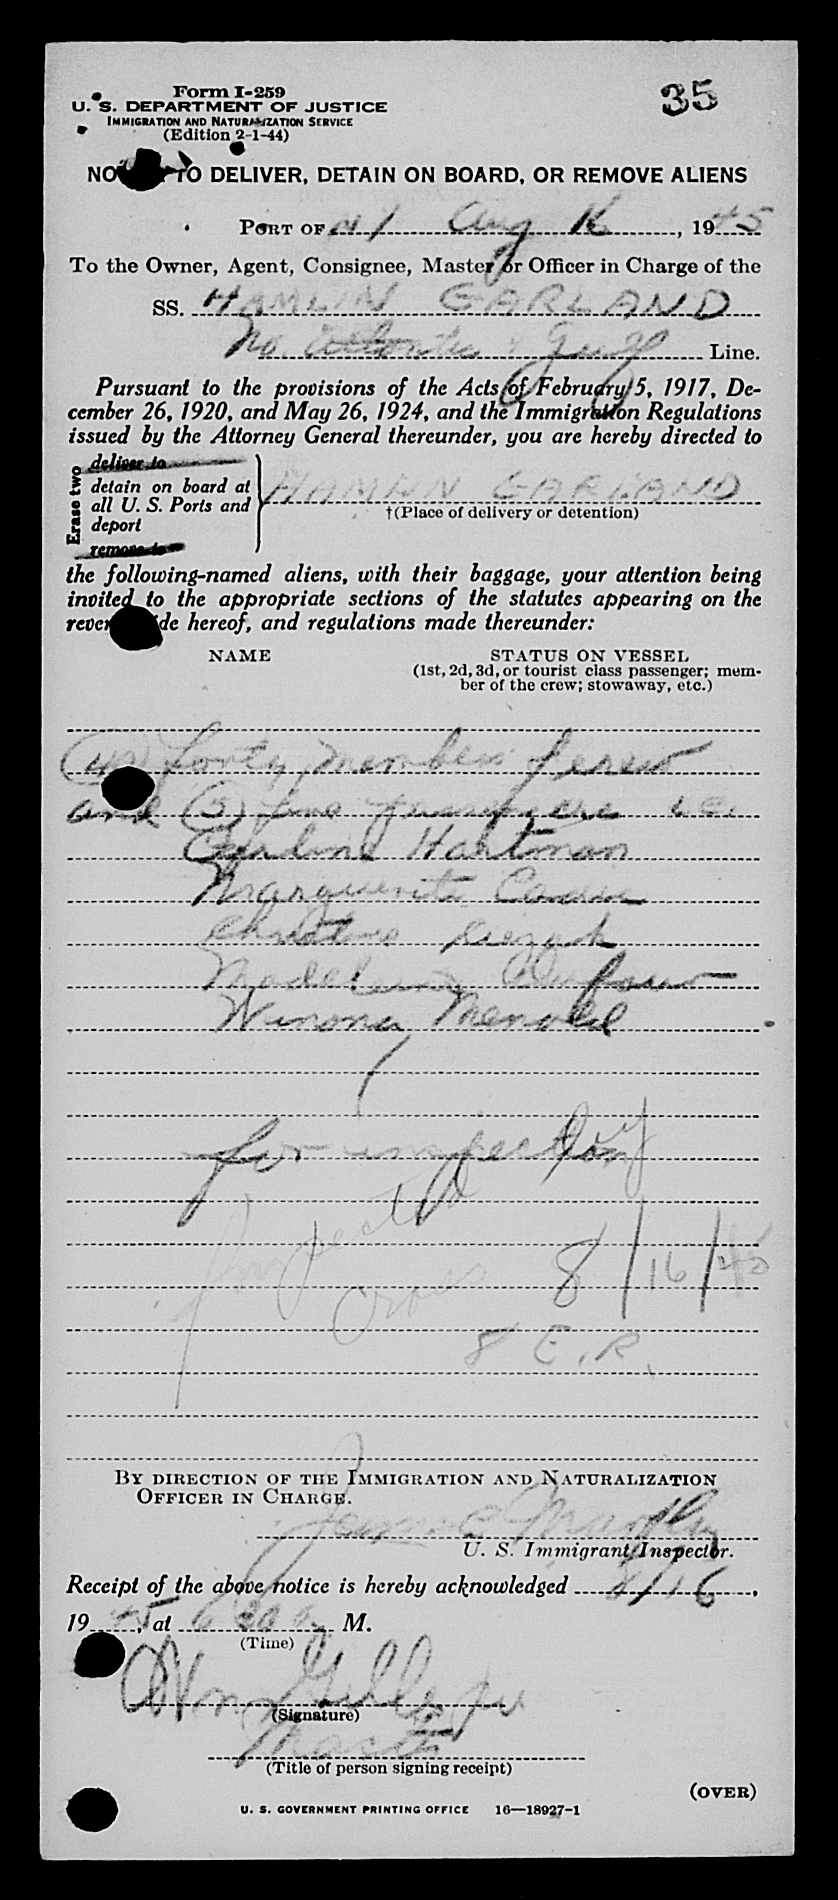 Form I-259
35
U. S. DEPARTMENT OF JUSTICE
IMMIGRATION AND NATURALIZATION SERVICE
(Edition 2-1-44)
NO TO DELIVER, DETAIN ON BOARD, OR REMOVE ALIENS
PORT OF NY Aug 16, 1945
To the Owner, Agent, Consignee, Master or Officer in Charge of the
SS. HAMLIN GARLAND
No. Atlantic & Gulf Line.
Pursuant to the provisions of the Acts of February 5, 1917, De-
cember 26, 1920, and May 26, 1924, and the Immigration Regulations
issued by the Attorney General thereunder, you are hereby directed to
Erase two
deliver to
detain on board at
all U. S. Ports and
deport
remove to
HAMLIN GARLAND
†(Place of delivery or detention)
the following-named aliens, with their baggage, your attention being
invited to the appropriate sections of the statutes appearing on the
rever de hereof, and regulations made thereunder:
NAME STATUS ON VESSEL
(1st, 2d, 3d, or tourist class passenger; mem-
ber of the crew; stowaway, etc.)
(40) forty members of crew
and (5) five passengers i.e.
Hartman
Marguerite
Christine
Madeleine
Winona
for inspection
Inspected
8/16/45
8 E.R.
BY DIRECTION OF THE IMMIGRATION AND NATURALIZATION
OFFICER IN CHARGE.
U. S. Immigrant Inspector.
Receipt of the above notice is hereby acknowledged 8/16,
1945, at 6 30 a M.
(Time)
Wm Gillespie
(Signature)
Master
(Title of person signing receipt)
(OVER)
U. S. GOVERNMENT PRINTING OFFICE 16—18927-1